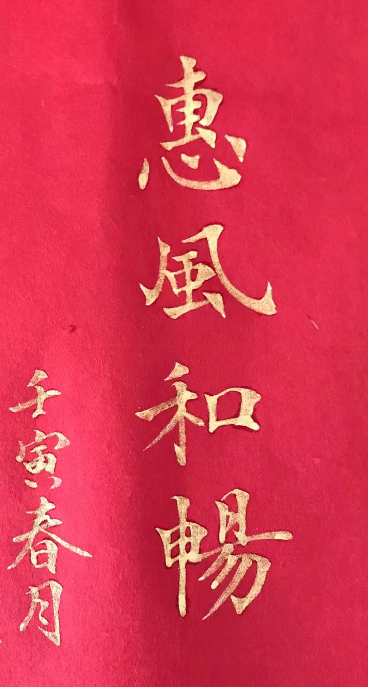 惠風和暢
壬寅春月